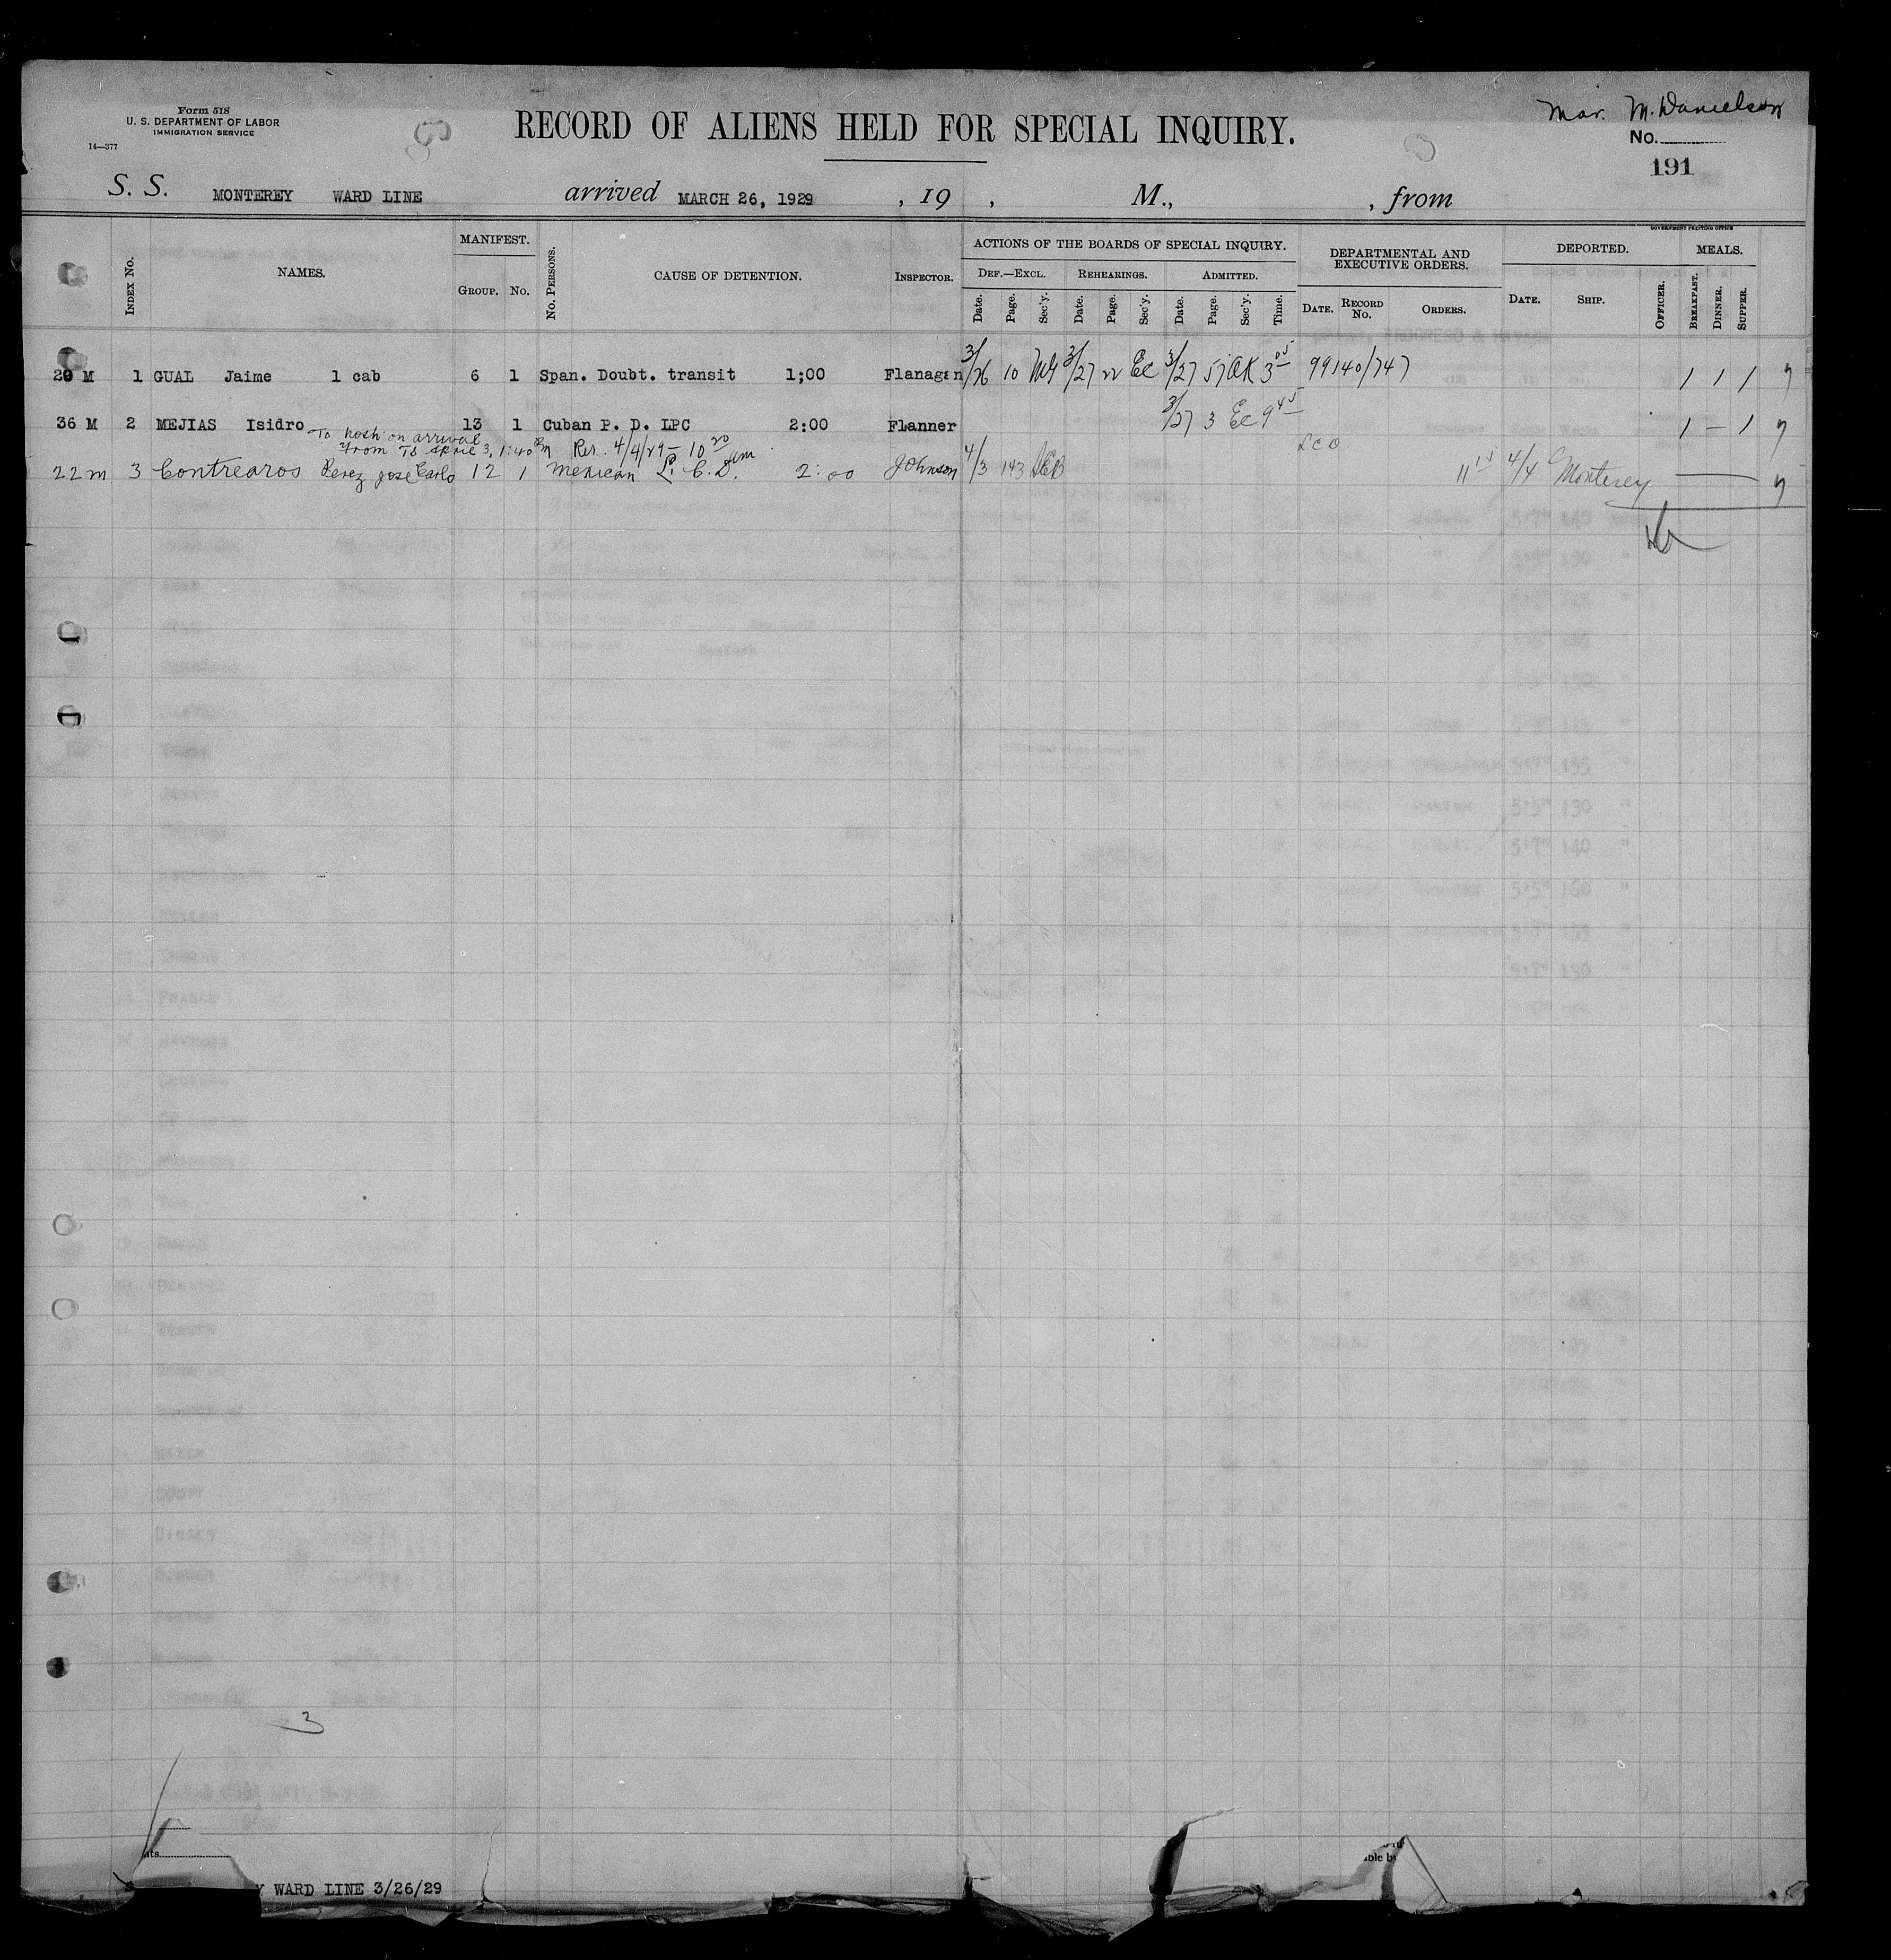 Form 518
U. S. DEPARTMENT OF LABOR
IMMIGRATION SERVICE
14—377
RECORD OF ALIENS HELD FOR SPECIAL INQUIRY.
Mar. M. Danielson
No.
191
S. S. MONTEREY WARD LINE arrived MARCH 26, 1929 , 19 , M., , from
GOVERNMENT PRINTING OFFICE
Index No. NAMES. MANIFEST. No. Persons. CAUSE OF DETENTION. Inspector. ACTIONS OF THE BOARDS OF SPECIAL INQUIRY. DEPARTMENTAL AND EXECUTIVE ORDERS. DEPORTED. MEALS.
Group. No. Def.—Excl. Rehearings. Admitted. Date. Record No. Orders. Date. Ship. Officer. Breakfast. Dinner. Supper.
Date. Page. Sec'y. Date. Page. Sec'y. Date. Page. Sec'y. Time.
20 M 1 GUAL Jaime 1 cab 6 1 Span. Doubt. transit 1;00 Flanagan 3/26 10 3/27 22 Ec 3/27 57 OK 3 05 99140/747 1 1 1
36 M 2 MEJIAS Isidro 13 1 Cuban P. D. LPC 2:00 Flanner 3/27 3 Ec 9 45 1 – 1
To hosp on arrival
From TS April 3, 1:40 PM Rer. 4/4/29 – 10 20 am
22 m 3 Contrearos Perez jose Carlo 12 1 Mexican L. C. D. 2:00 Johnson 4/3 143 11 15 4/4 Monterey
3
Y WARD LINE 3/26/29